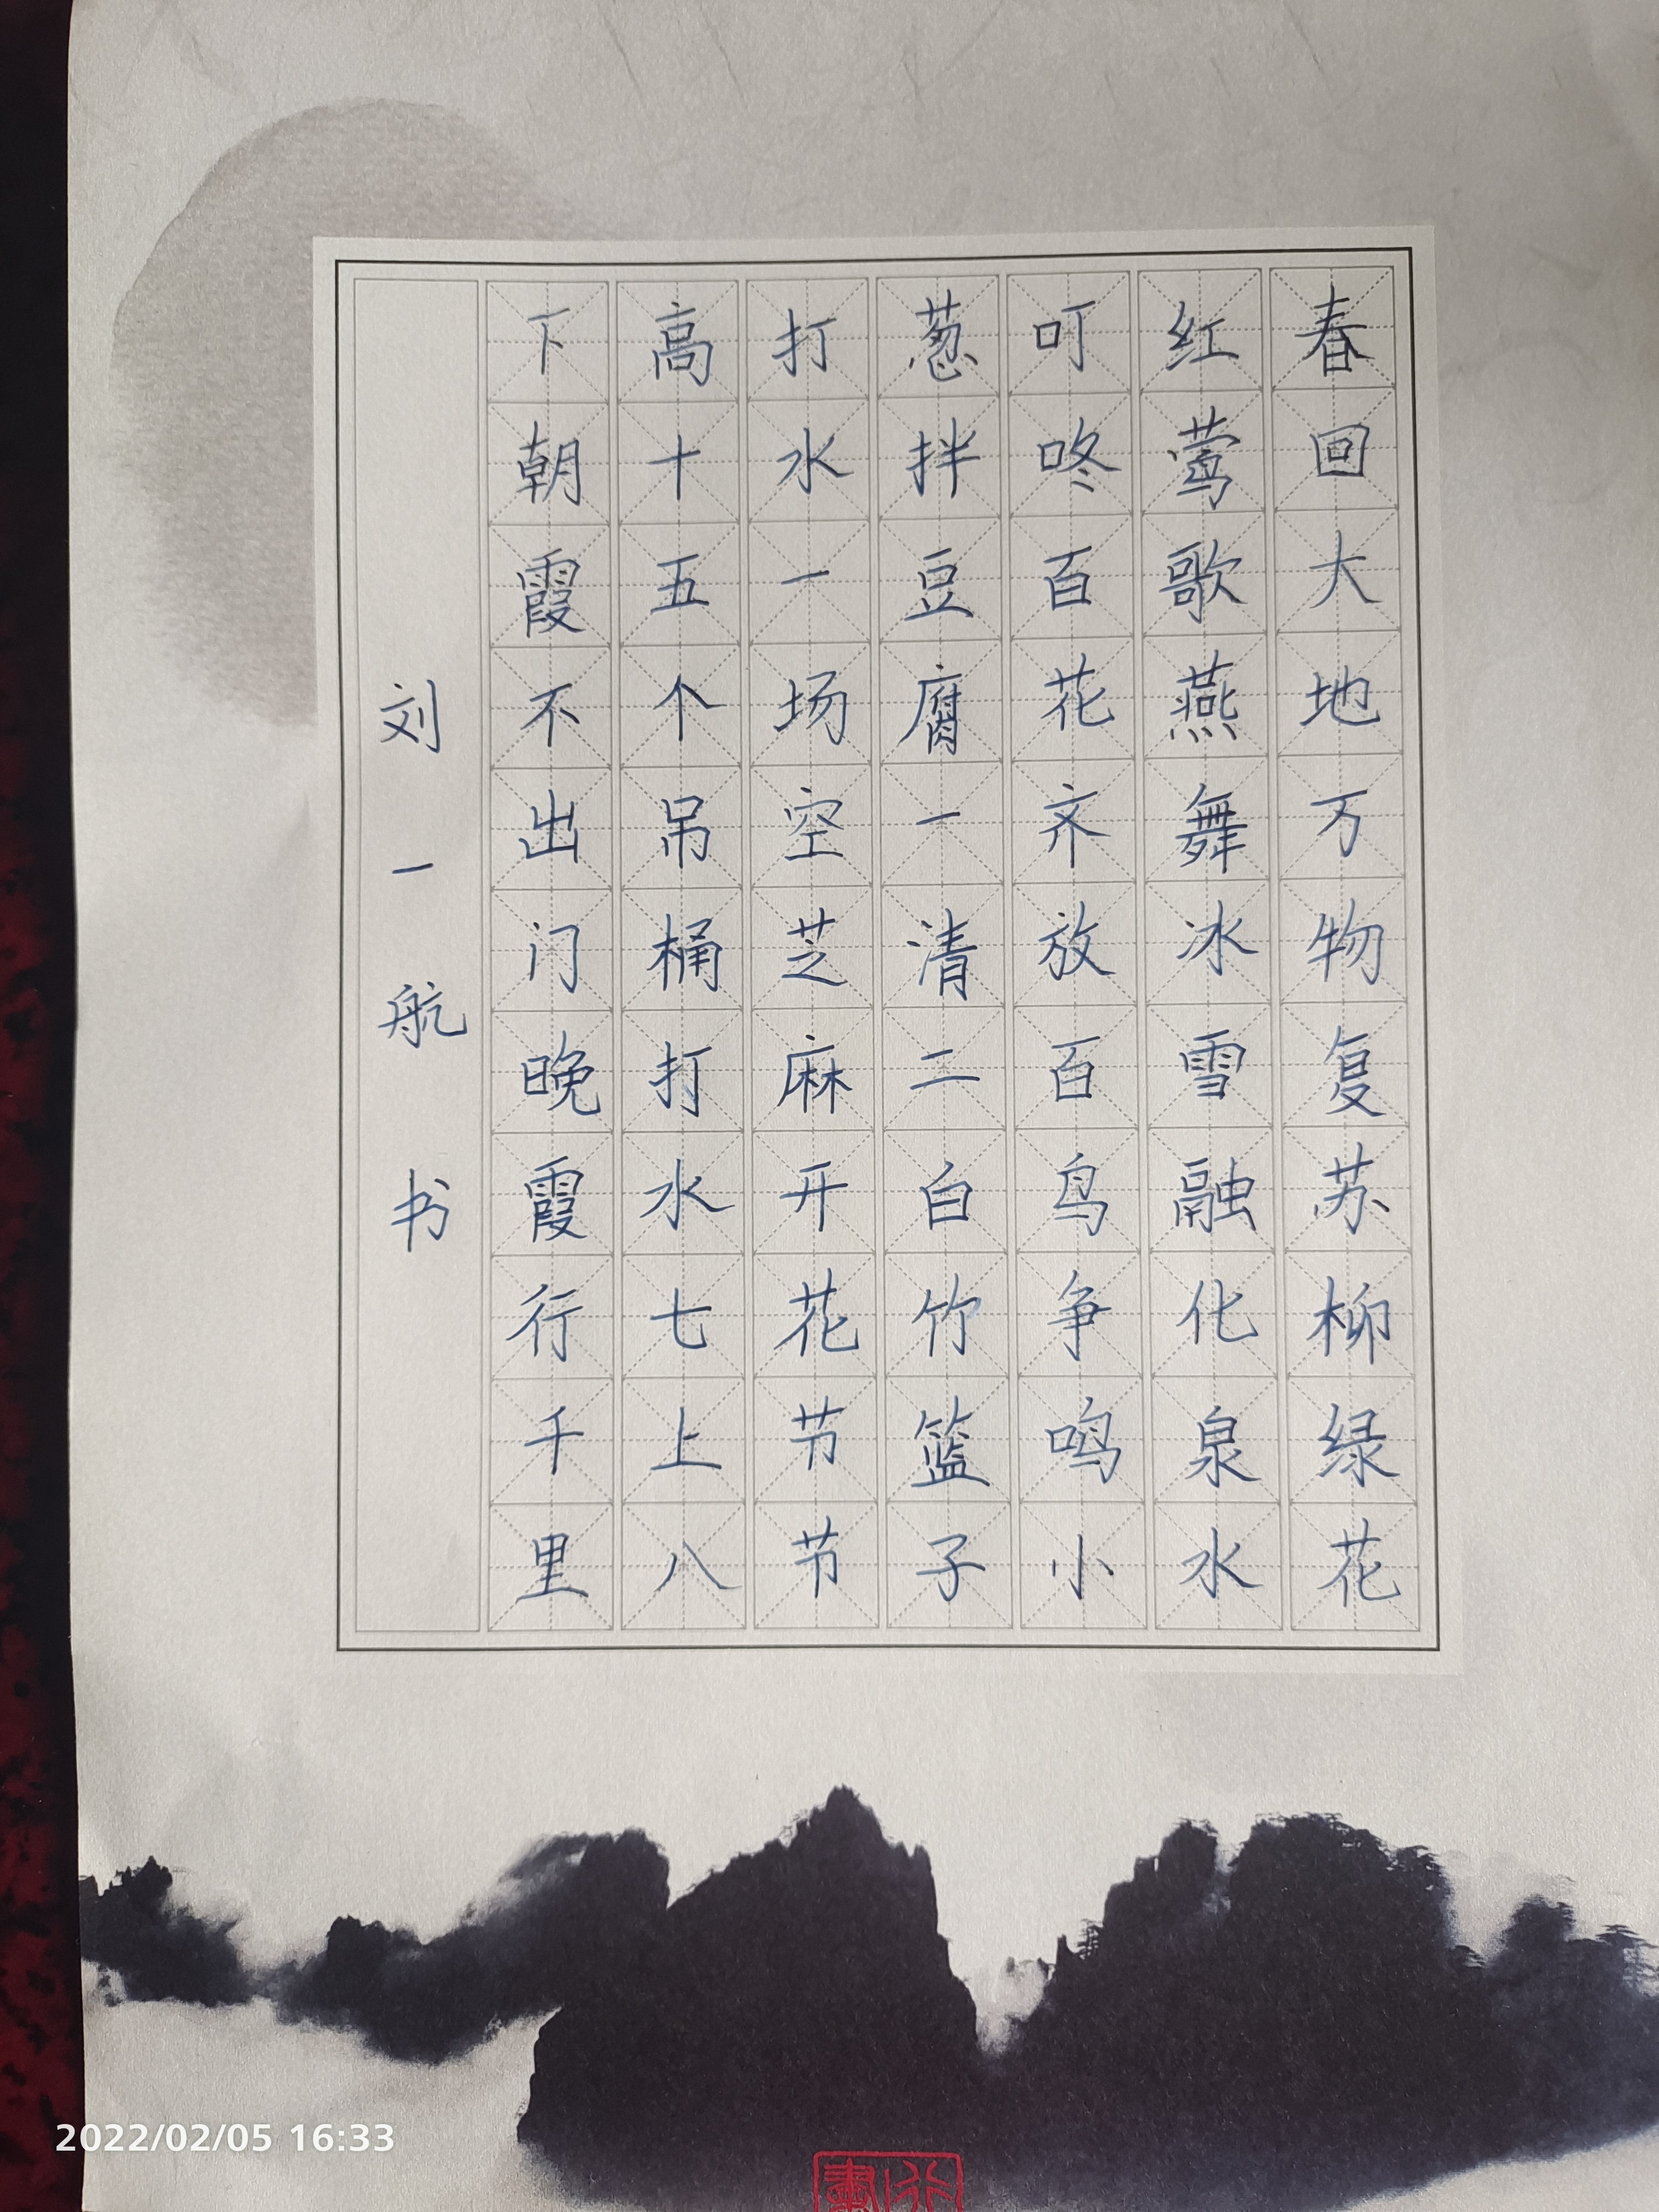 春回大地万物复苏柳绿花
红莺歌燕舞冰雪融化泉水
叮咚百花齐放百鸟争鸣小
葱拌豆腐一清二白竹篮子
打水一场空芝麻开花节节
高十五个吊桶打水七上八
下朝霞不出门晚霞行千里
刘一航书
2022/02/05 16:33